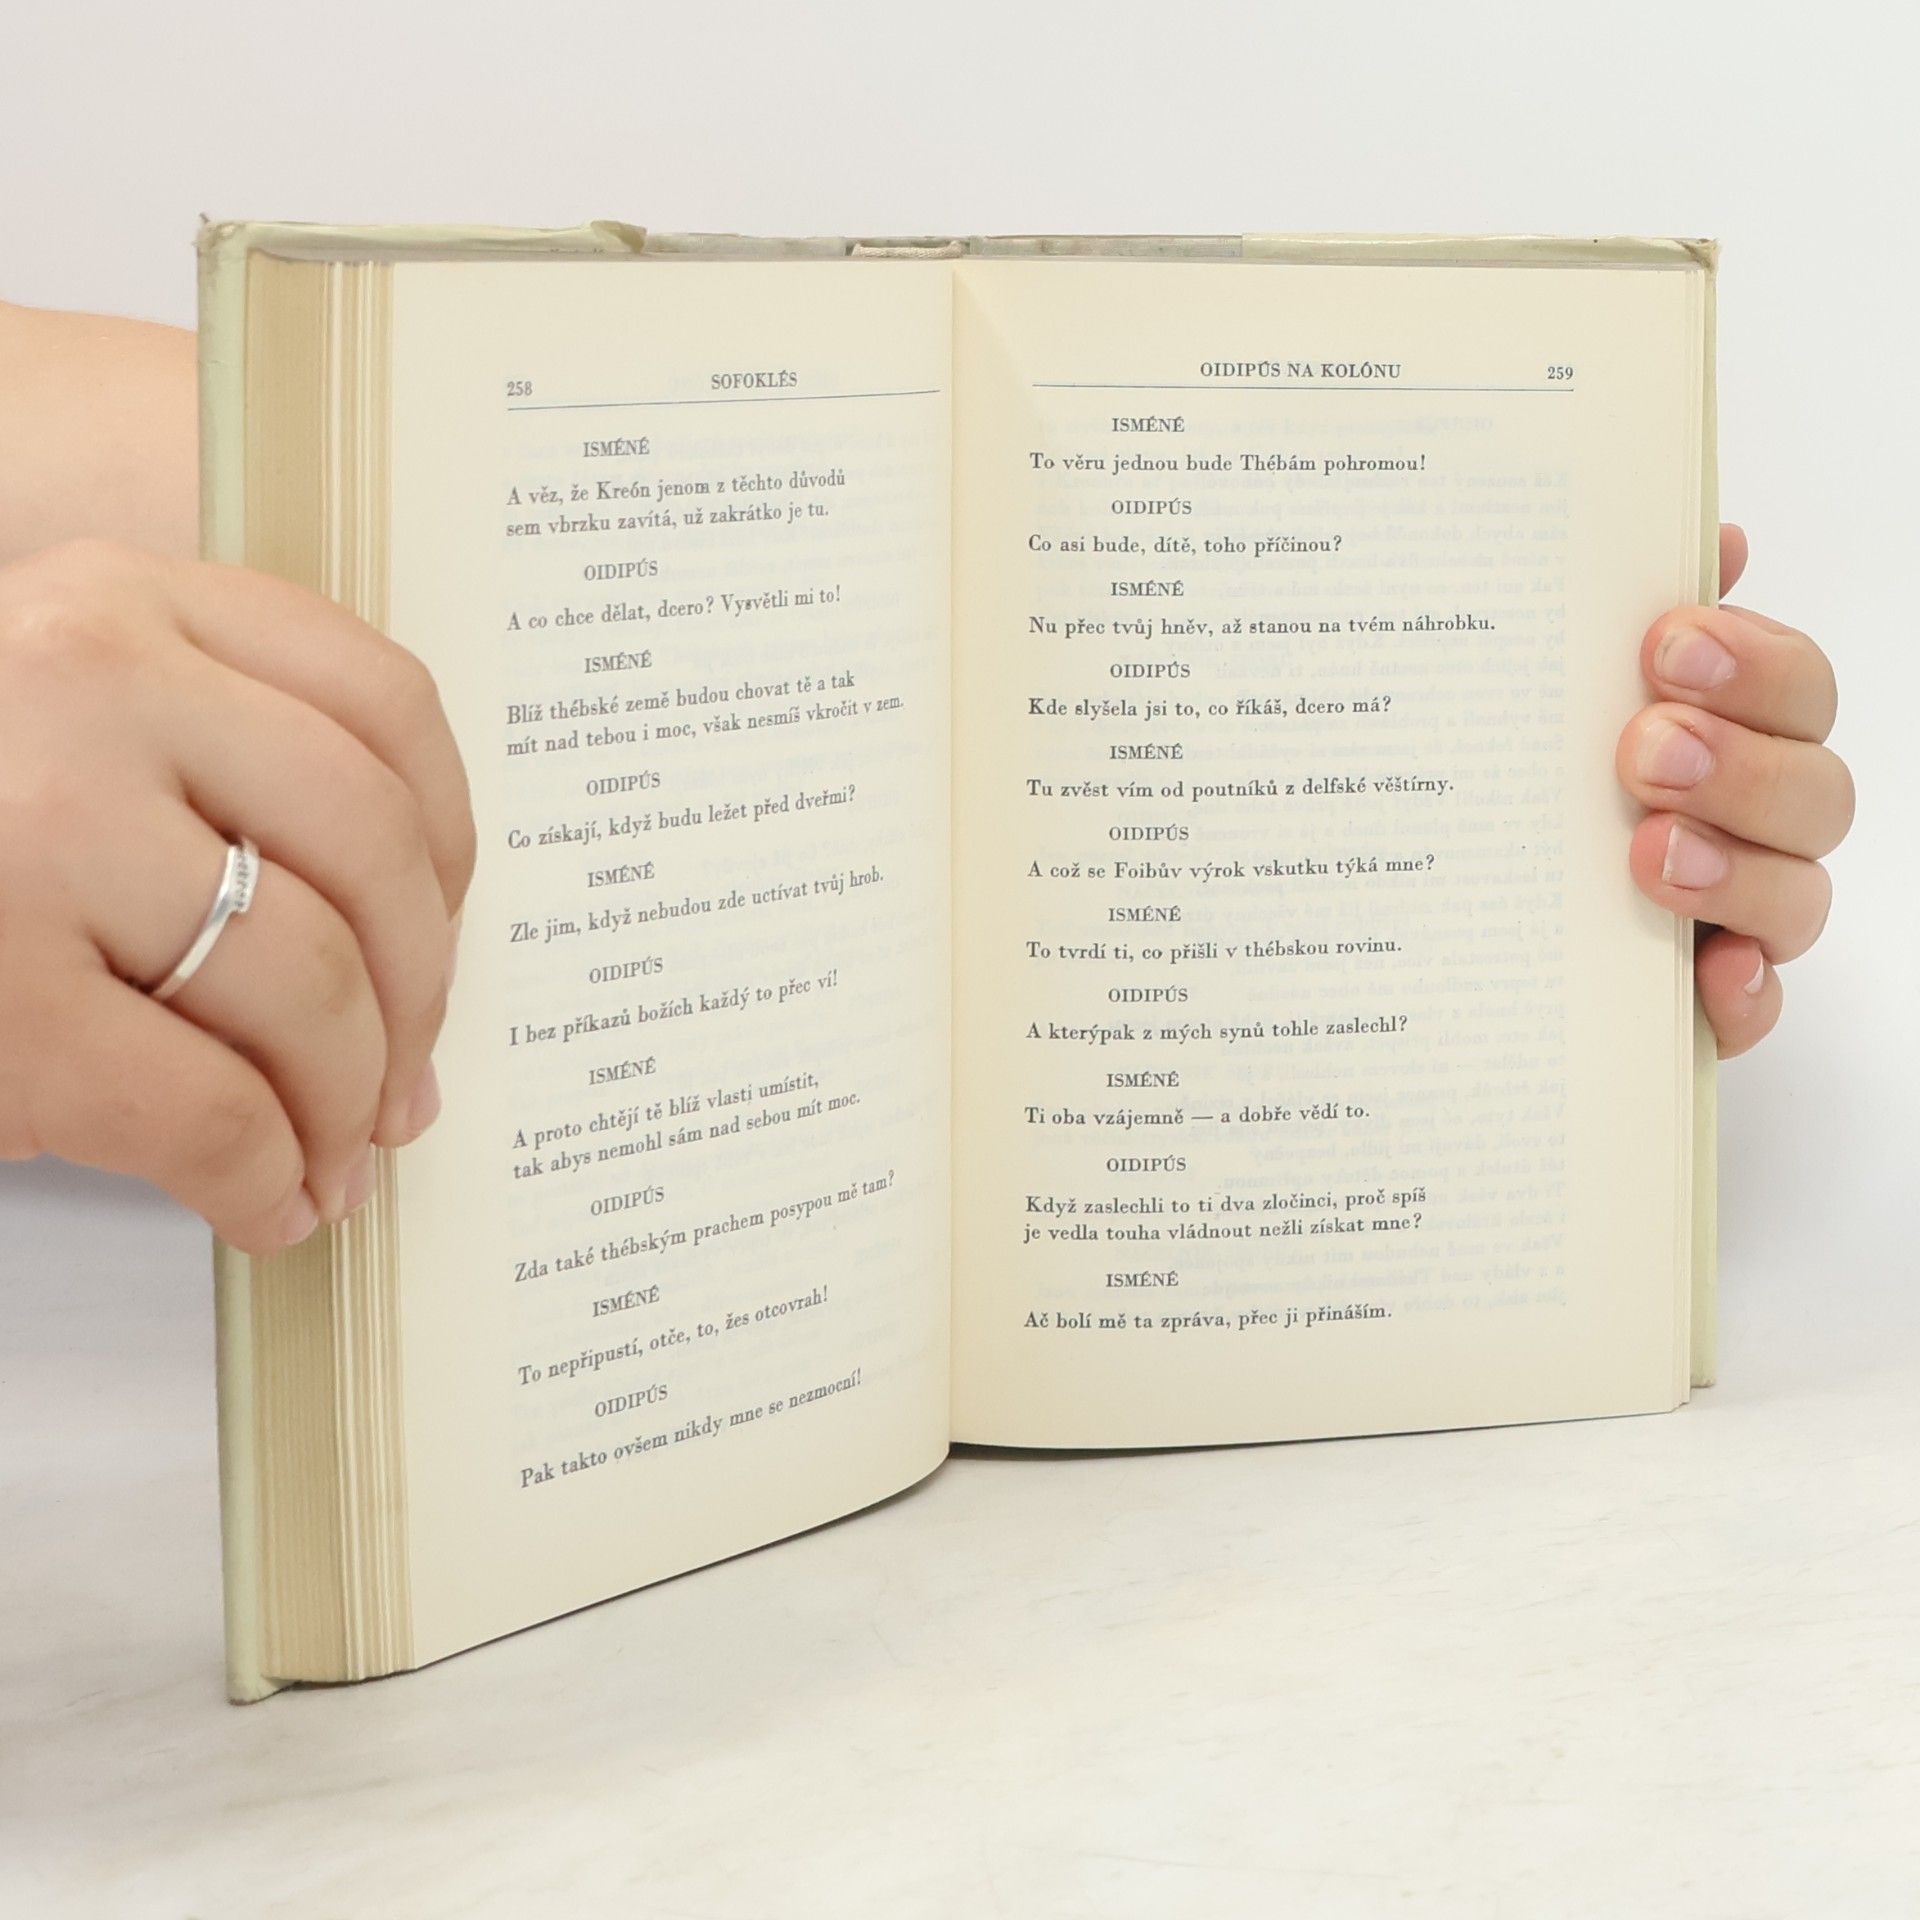 258
SOFOKLÉS
ISMÉNÉ
A věz, že Kreón jenom z těchto důvodů
sem vbrzku zavítá, už zakrátko je tu.
OIDIPÚS
A co chce dělat, dcero? Vysvětli mi to!
ISMÉNÉ
Blíž thébské země budou chovat tě a tak
mít nad tebou i moc, však nesmíš vkročit v zem.
OIDIPÚS
Co získají, když budu ležet před dveřmi?
ISMÉNÉ
Zle jim, když nebudou zde uctívat tvůj hrob.
OIDIPÚS
I bez příkazů božích každý to přec ví!
ISMÉNÉ
A proto chtějí tě blíž vlasti umístit,
tak abys nemohl sám nad sebou mít moc.
OIDIPÚS
Zda také thébským prachem posypou mě tam?
ISMÉNÉ
To nepřipustí, otče, to, žes otcovrah!
OIDIPÚS
Pak takto ovšem nikdy mne se nezmocní!
OIDIPÚS NA KOLÓNU
259
ISMÉNÉ
To věru jednou bude Thébám pohromou!
OIDIPÚS
Co asi bude, dítě, toho příčinou?
ISMÉNÉ
Nu přec tvůj hněv, až stanou na tvém náhrobku.
OIDIPÚS
Kde slyšela jsi to, co říkáš, dcero má?
ISMÉNÉ
Tu zvěst vím od poutníků z delfské věštírny.
OIDIPÚS
A což se Foibův výrok vskutku týká mne?
ISMÉNÉ
To tvrdí ti, co přišli v thébskou rovinu.
OIDIPÚS
A kterýpak z mých synů tohle zaslechl?
ISMÉNÉ
Ti oba vzájemně — a dobře vědí to.
OIDIPÚS
Když zaslechli to ti dva zločinci, proč spíš
je vedla touha vládnout nežli získat mne?
ISMÉNÉ
Ač bolí mě ta zpráva, přec ji přináším.